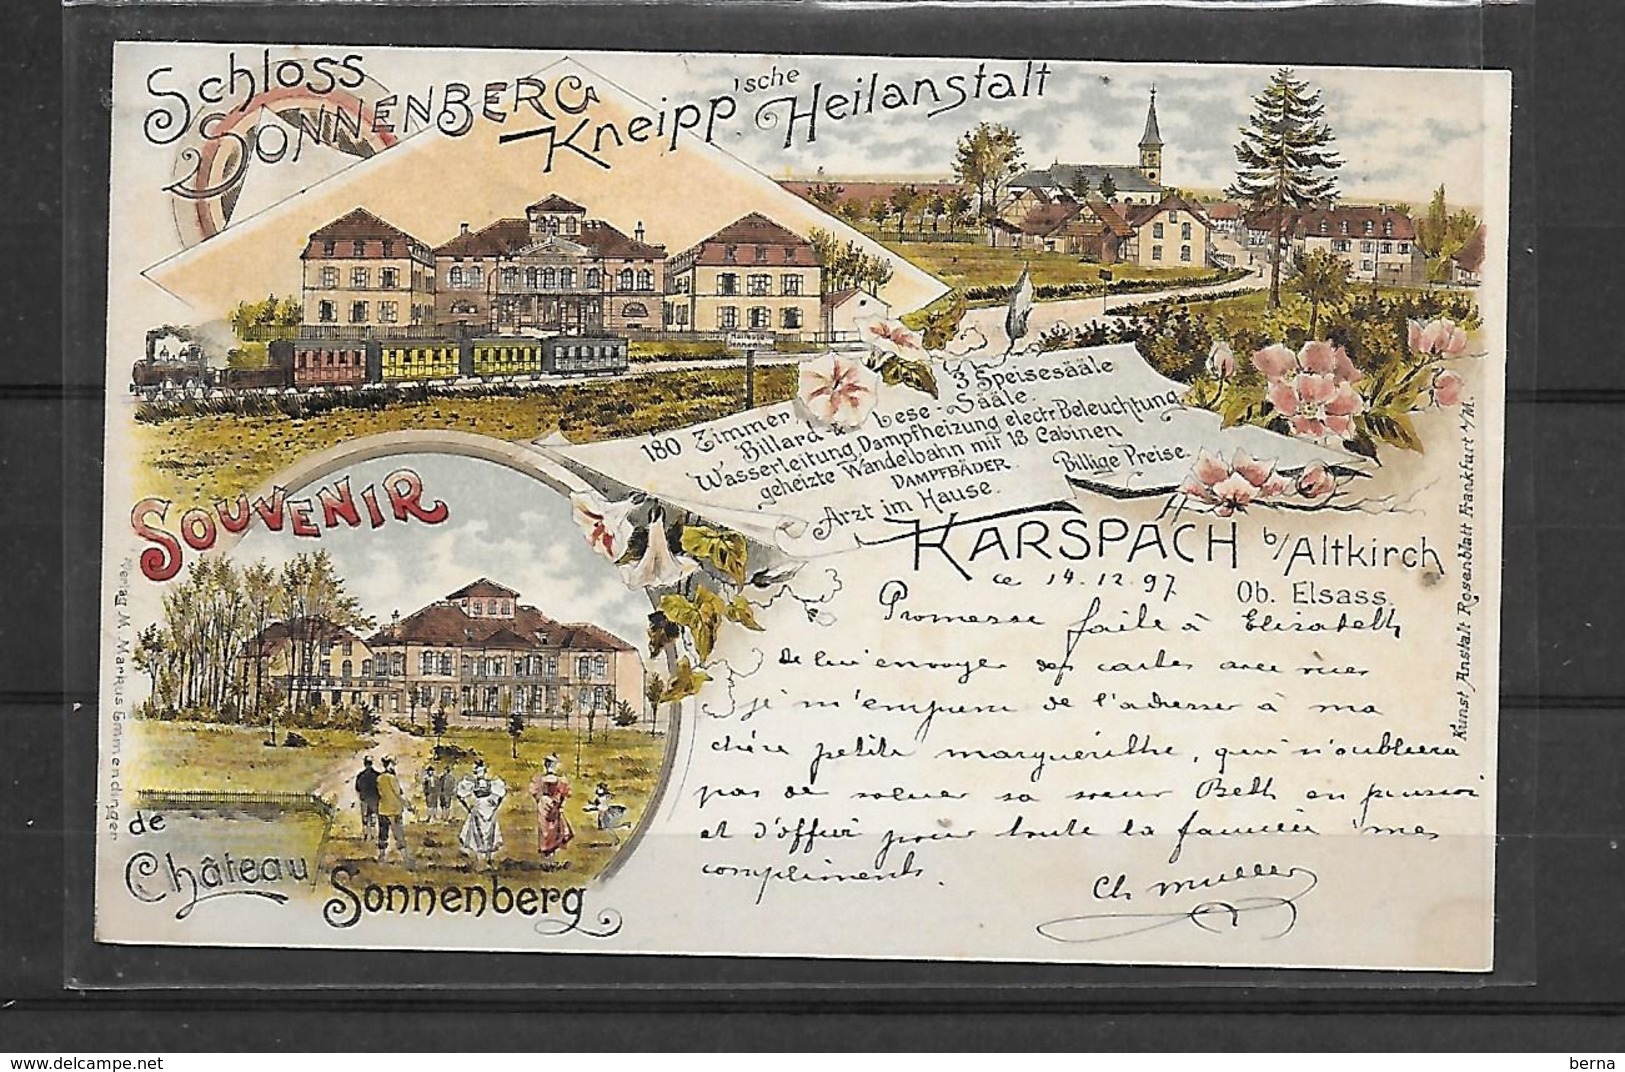 Schloss
Sonnenberg
Kneipp'sche Heilanstalt
Haltestelle
Sonnenberg
180 Zimmer, 3 Speisesääle
Billard & Lese-Sääle
Wasserleitung, Dampfheizung electr Beleuchtung
geheizte Wandelbahn mit 18 Cabinen
Dampfbäder. Billige Preise.
Arzt im Hause.
Souvenir
de
Château
Sonnenberg
Karspach b/Altkirch
Ob. Elsass.
ce 14.12.97
Promesse faite à Elisabeth
de lui envoyer des cartes avec vues
je m'empresse de l'adresser à ma
chère petite marguerithe, qui n'oubliera
pas de saluer sa soeur Beth en pension
et d'offrir pour toute la famille mes
compliments.
Ch Muller
Verlag M. Markus Emmendingen
Kunst Anstalt Rosenblatt Frankfurt a/M.
delcampe.net
berna